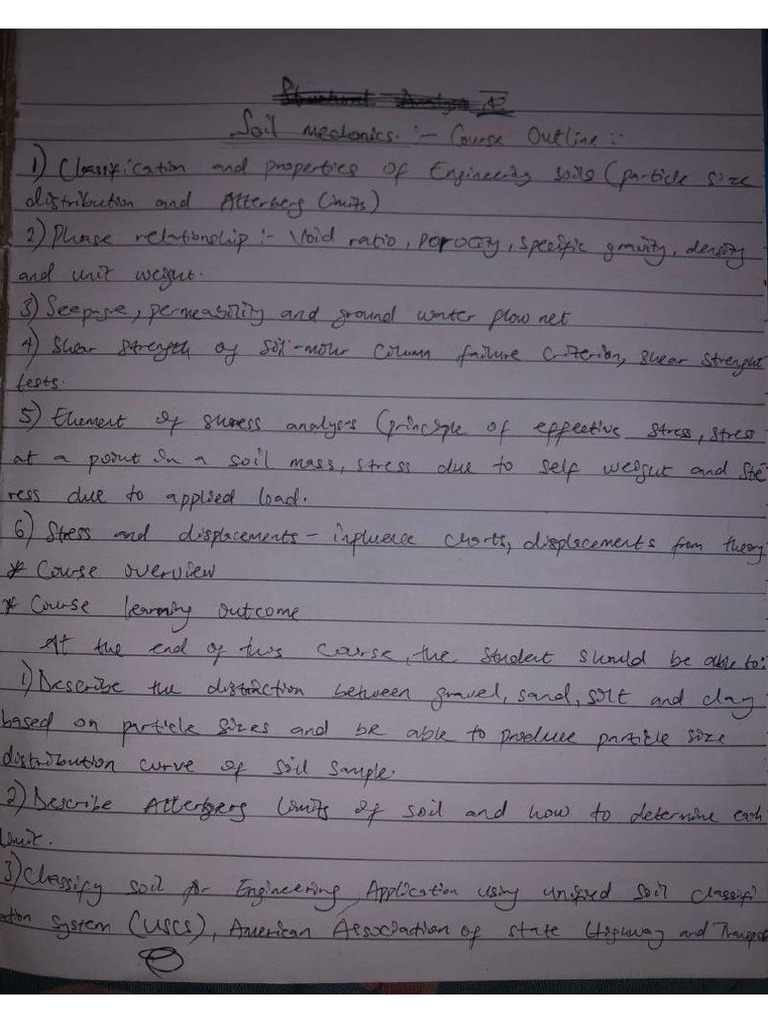 Structural Analysis
Soil mechanics :- Course Outline :-
1) Classification and properties of Engineering soils (particle size
distribution and Atterberg Limits)
2) Phase relationship :- Void ratio, porocity, specific gravity, density
and unit weight.
3) Seepage, permeability and ground water flow net
4) Shear strength of soil-mohr column failure criterion, shear strenght
tests.
5) Element of stress analysis (principle of effective stress, stress
at a point in a soil mass, stress due to self weight and st
ress due to applied load.
6) Stress and displacements - influence charts, displacements from theory
* Course overview
* Course learning outcome
At the end of this course, the student should be able to:
1) Describe the distinction between gravel, sand, silt and clay
based on particle sizes and be able to produce particle size
distribution curve of soil sample.
2) Describe Atterbergs limits of soil and how to determine each
limit.
3) Classify soil for Engineering Application using unified soil classifi
ation system (USCS), American Association of state Highway and Transpot